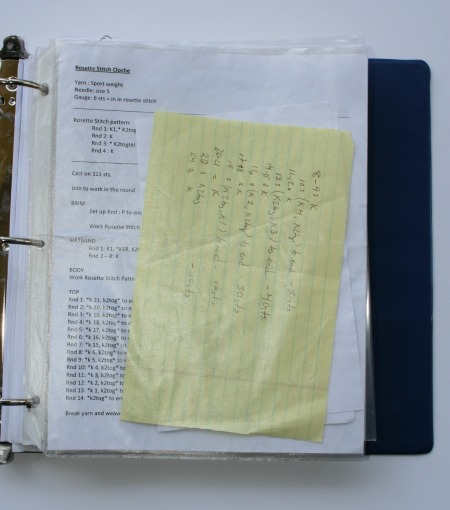 Rosette Stitch Cloche
Yarn : Sport weight
Needle: size 5
Gauge: 6 sts = in in rosette stitch
Rosette Stitch pattern:
Rnd 1: K1,* K2tog
Rnd 2: K
Rnd 3: * K2togtbl
Rnd 4 : K
Cast on 121 sts.
Join to work in the round
BRIM
Set up Rnd : P to ens
Work Rosette Stitch
HATBAND
Rnd 1: K1, *K18, K2
Rnd 2 – 8: K
BODY
Work Rosette Stitch Patte
TOP
Rnd 1: *k 21, k2tog* to e
Rnd 2: *k 20, k2tog* to
Rnd 3: *k 19, k2tog* to e
Rnd 4: *k 18, k2tog* to
Rnd 5: *k 17, k2tog* to
Rnd 6: *k 16, k2tog* to
Rnd 7: *k 15, k2tog* to
Rnd 8: *k 6, k2tog* to e
Rnd 9: *k 5, k2tog* to e
Rnd 10: *k 4, k2tog* to
Rnd 11: *k 3, k2tog* to
Rnd 12: *k 2, k2tog* to
Rnd 13: *k 1, k2tog* to
Rnd 14: *k2tog* to en
Break yarn and weave
8-9 = K
10 = (K4, K2tog) to end
= K
13 = (K2tog, K3) to end - 40sts
= K
16 = (K2, K2tog) to end 30sts
= K
19 = (K2tog, K1) to end
20-21 = K
22 = K2tog - 10sts
= K